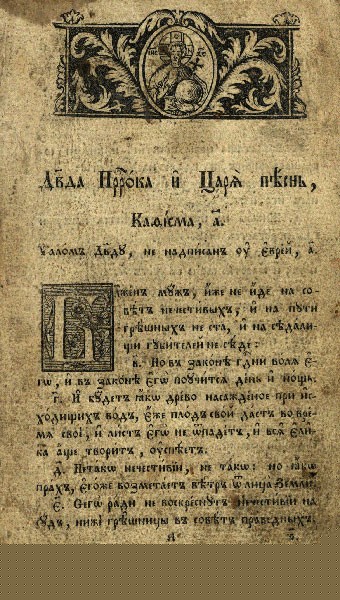 Дв҃да Прⷪ҇ро́ка и҆ Царѧ̀ пѣ́снь,
Каѳі́сма, а҃.
Ѱало́мъ Дв҃ду, не надпи́санъ ᲂу҆ є҆врє́й, а҃.
Бл҃же́нъ мꙋ́жъ, и҆́же не и҆́де на со-
вѣ́тъ нечести́выхъ, и҆ на пꙋтѝ
грѣ́шныхъ не ста̀, и҆ на сѣда́ли-
щи гꙋби́телей не сѣ́де:
в҃. Но въ зако́нѣ гдⷭ҇ни во́лѧ є҆-
гѡ̀, и҆ въ зако́нѣ є҆гѡ̀ поꙋчи́тсѧ де́нь и҆ но́щь.
г҃. И҆ бꙋ́детъ ꙗ҆́кѡ дре́во насажде́ное при и҆с-
хо́дищихъ во́дъ, є҆́же пло́дъ сво́й да́стъ во вре́-
мѧ своѐ, и҆ ли́стъ є҆гѡ̀ не ѿпаде́тъ, и҆ всѧ̑ є҆ли̑-
ка а҆́ще твори́тъ, ᲂу҆спѣ́етъ.
д҃. Не та́кѡ нечести́вїи, не та́кѡ: но ꙗ҆́кѡ
пра́хъ, є҆го́же возмета́етъ вѣ́тръ ѿ лица̀ землѝ.
є҃. Сегѡ̀ ра́ди не воскре́снꙋтъ нечести́вїи на
сꙋ́дъ, нижѐ грѣ́шницы въ совѣ́тъ пра́ведныхъ.